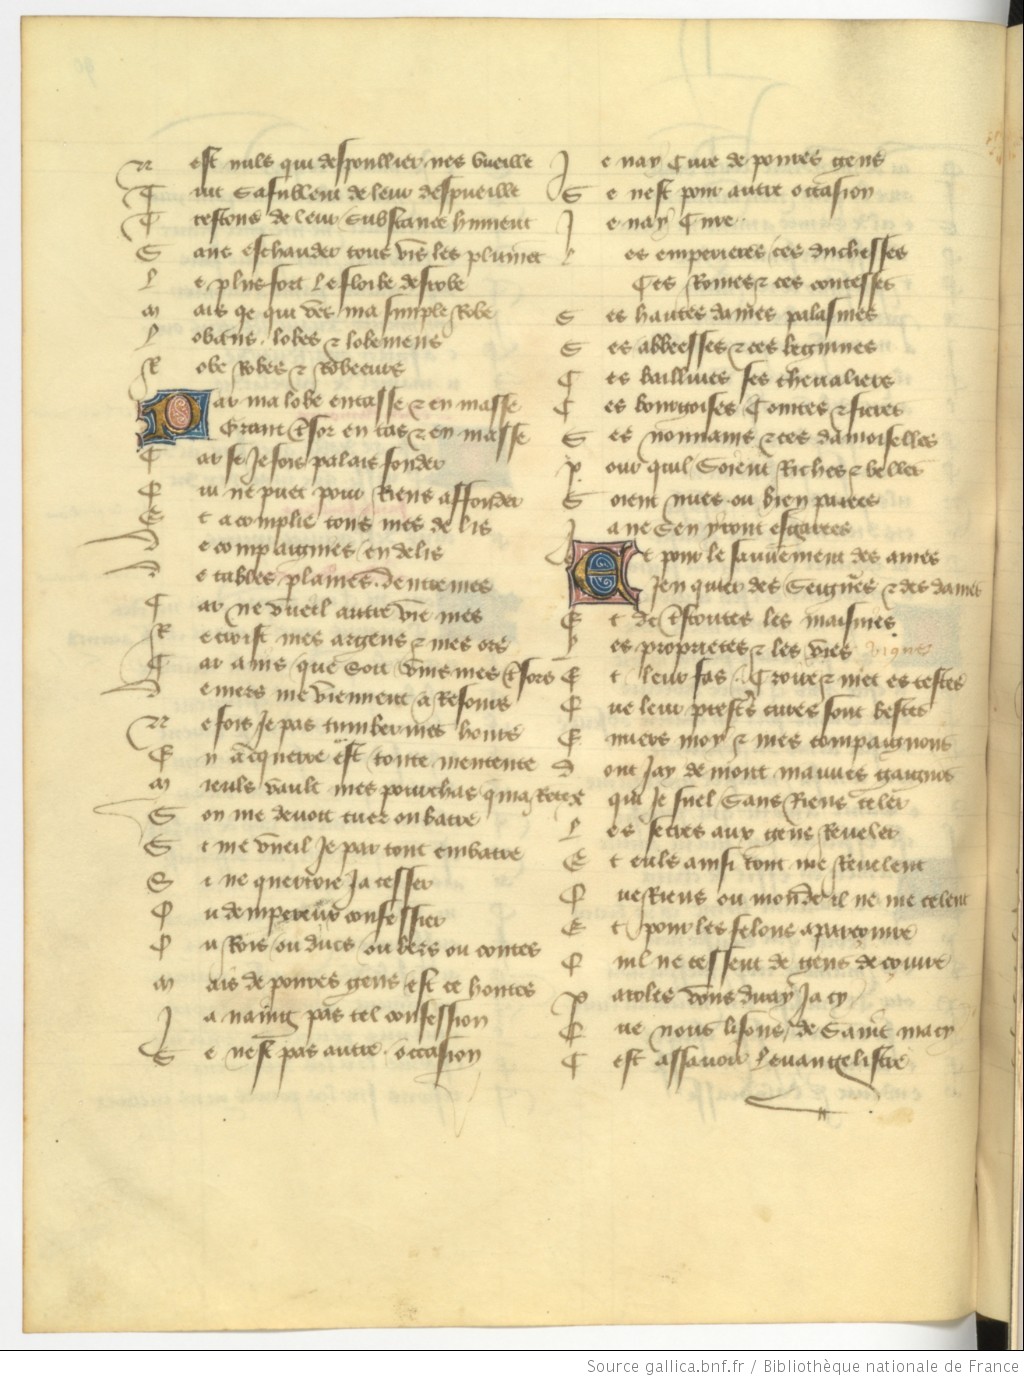 N est nuls qui despoullier nes vueille
T uit safullent de leur despueille
T restous de leur substance hument
S ans eschauder tous vis les plument
L e plus fort le floibe desrobe
M ais ge qui vės ma simple Robe
L obans lobes ⁊ lobemens
R obe Robes ⁊ Robeeurs
P ar ma lobe entasse ⁊ en masse
Grant tsor en tas ⁊ en masse
C ar se Je fois palais fonder
Q ui ne puet pour Riens affonder
E t acomplir tous mes delis
D e compaignies en delis
D e tables plaines dentremes
C ar ne vueil autre vie mes
R ecroist mes argens ⁊ mes ors
C ar ains que soit vuis mes tsors
D eniers me viennent a Resours
N e fois Je pas tumber mes hours
E n acquerre est toute mentente
M ieuls vault mes pourchas q ma Rente
S on me devoit tuer ou batre
S i me vueil Je par tout embatre
S i ne querroie Ja cesser
O u dempereurs confesser
O u Rois ou ducs ou bers ou contes
M ais de povres gens est ce hontes
J e naimg pas tel confession
S e nest pas autre occasion
J e nay Cure de povres gens
S e nest pour autre occasion
J e nay Cure
L es emperieres ces duchesses
Ces Roines ⁊ ces contesses
S es hautes dames palasines
S es abbeesses ⁊ ces beguines
C es baillives ses chevaliers
C es bourgoises Cointes ⁊ fieres
S es nonnains ⁊ ces damoiselles
P our quil soient Riches ⁊ belles
S oient nues ou bien parees
J a ne sen yront esgarees
Et pour le sauvement des ames
Jen quier des seigneurs ⁊ des dames
E t de tstoutes les maisnies
L es proprietes ⁊ les vies
E t leur fas Croire ⁊ met es testes
Q ue leur prestrs cures sont bestes
E nvers moy ⁊ mes compaignons
D ont Jay de mont mauves gaignōs
qui Je suel sans Riens celer
L es secres aux gens Reveler
E t euls ainsi tout me Revelent
Q ue Riens ou monde il ne me celent
E t pour les felons aparcoivre
Q uil ne cessent de gens decoivre
P aroles vous diray Ja cy
Q ue nous lisons de saint macy
C est assavoir levangelistre
Source gallica.bnf.fr / Bibliothèque nationale de France